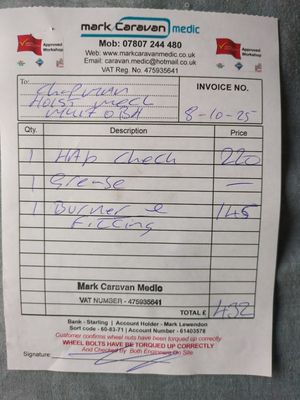 mark Caravan medic
Approved Workshop
Approved Workshop
Mob: 07807 244 480
Web: www.markcaravanmedic.co.uk
Email: caravan.medic@hotmail.co.uk
VAT Reg. No. 475935641
To:
INVOICE NO.
8-10-25
Qty. Description Price
1 HAb check 220
1 Grease —
1 Burner & 145
Fitting
Mark Caravan Medic
VAT NUMBER - 475935641
TOTAL £ 432
Bank - Starling | Account Holder - Mark Lawendon
Sort code - 60-83-71 | Account Number - 61403578
Customer confirms wheel nuts have been torqued up correctly
WHEEL BOLTS HAVE BE TORQUED UP CORRECTLY
And Checked By Both Engineers On Site
Signature: